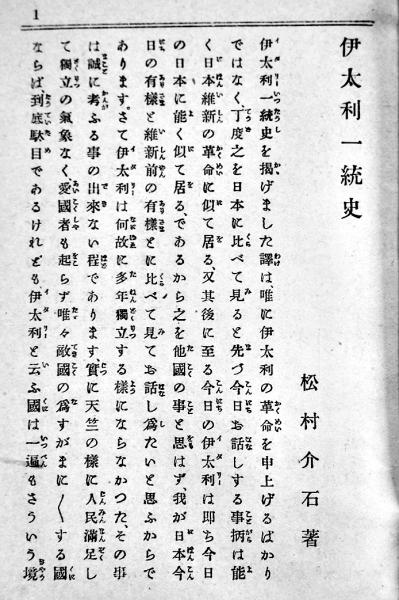 1
伊太利一統史
松村介石著
伊太利一統史を揭げました譯は、唯に伊太利の革命を申上げるばかり
ではなく、丁度之を日本に比べて見ると先づ今日お話しする事柄は能
く日本維新の革命に似て居る、又其後に至る今日の伊太利は卽ち今日
の日本に能く似て居る、であるから之を他國の事と思はず、我が日本今
日の有樣と維新前の有樣とに比べて見てお話し爲たいと思ふからで
あります。さて伊太利は何故に多年獨立する樣にならなかつた、その事
は誠に考ふる事の出來ない程であります、實に天竺の樣に人民滿足し
て獨立の氣象なく、愛國者も起らず唯々敵國の爲すがまに〱する國
ならば到底駄目であるけれども伊太利と云ふ國は一遍もさういう境